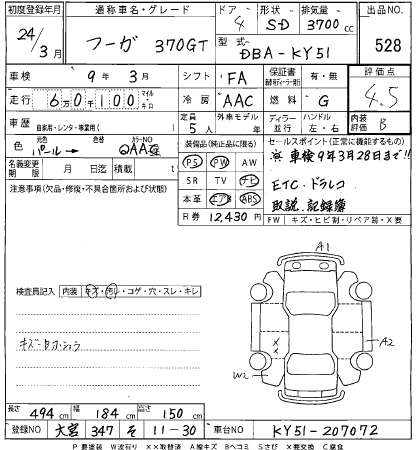 初度登録年月 通称車名・グレード ドア 形状 排気量 出品NO
24/3月 フーガ 370GT 4 SD 3700cc 528
型式 DBA-KY51
車検 9年3月 シフト FA 保証書 有・無 評価点
走行 6万0千100 マイル・キロ 冷房 AAC 燃料 G 4.5
車歴 自家用・レンタ・事業用( ) 定員 5人 外車モデル 年 ディラー・並行 ハンドル 左・右 内装評価 B
色 元色 パール→ 色替 カラーNO QAA 装備品(純正品に限る) セールスポイント(正常に機能するもの)
名義変更期限 月 日迄 積載 t PS PW AW ※車検9年3月28日まで!!
注意事項(欠品・修復・不具合箇所および状態) SR TV ナビ ETC・ドラレコ
本革 エアB ABS 取説、記録簿
R券 12,430円 FW キズ・ヒビ割・リペア跡・X要
A1
検査員記入 内装 キズ・汚レ・コゲ・穴・スレ・キレ
A2
W2
長さ 494cm 幅 184cm 高さ 150cm
登録NO 大宮 347 そ 11-30 車台NO KY51-207072
P要塗装 W波有り XX取替済 A線キズ Bヘコミ Sさび X要交換 C腐食